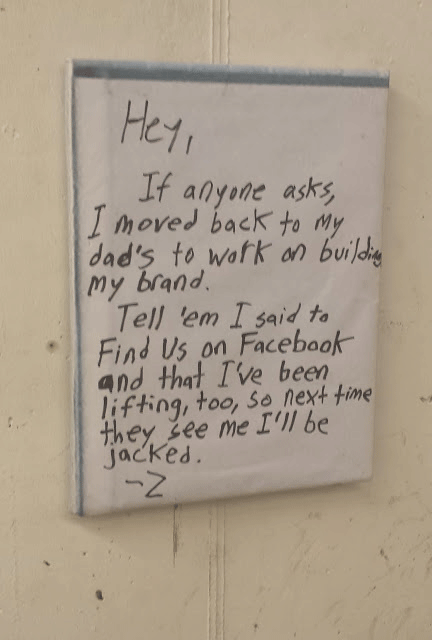 Hey,
If anyone asks,
I moved back to my
dad's to work on building
my brand.
Tell 'em I said to
Find Us on Facebook
and that I've been
lifting, too, so next time
they see me I'll be
jacked.
-Z